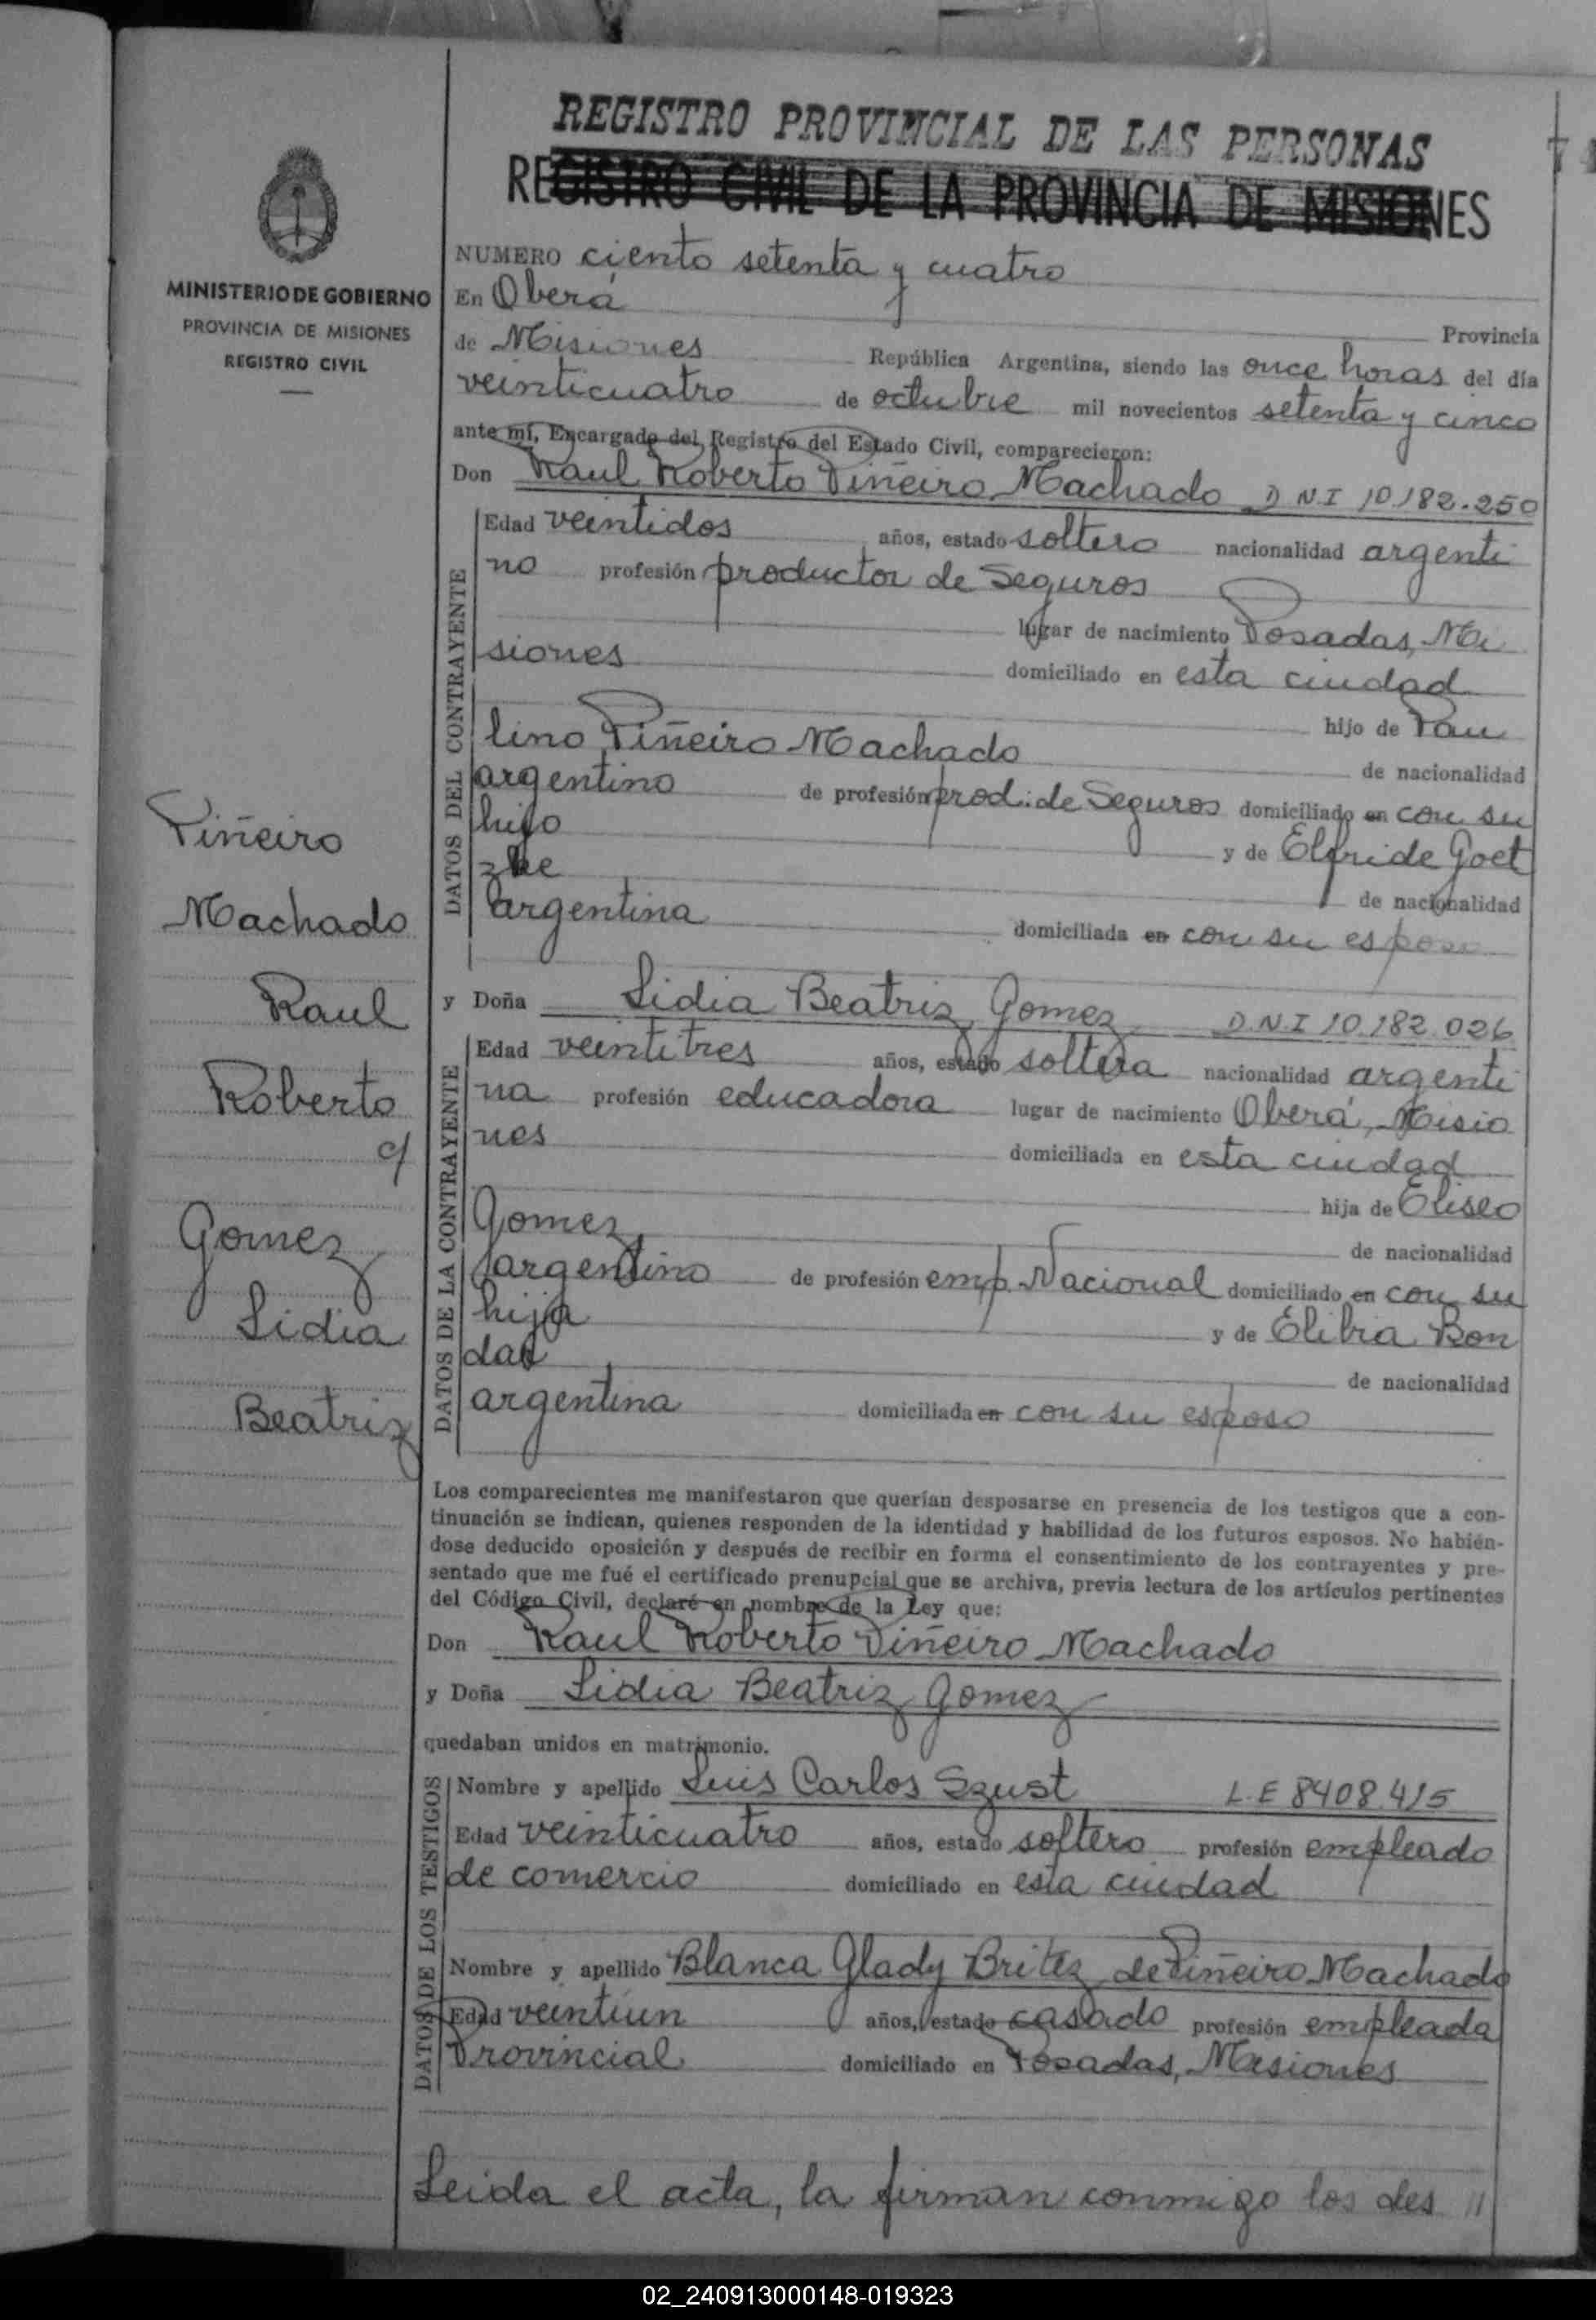 REGISTRO PROVINCIAL DE LAS PERSONAS
REGISTRO CIVIL DE LA PROVINCIA DE MISIONES
MINISTERIO DE GOBIERNO
PROVINCIA DE MISIONES
REGISTRO CIVIL
NUMERO ciento setenta y cuatro
En Oberá
Provincia
de Misiones República Argentina, siendo las once horas del día
veinticuatro de octubre mil novecientos setenta y cinco
ante mí, Encargado del Registro del Estado Civil, comparecieron:
Don Raul Roberto Piñeiro Machado D.N.I 10.182.250
DATOS DEL CONTRAYENTE
Edad veintidos años, estado soltero nacionalidad argenti
no profesión productor de Seguros
lugar de nacimiento Posadas, Mi
siones domiciliado en esta ciudad
hijo de Pau
lino Piñeiro Machado de nacionalidad
argentino de profesión prod. de Seguros domiciliado en con su
hijo y de Elfride Goet
zke de nacionalidad
argentina domiciliada en con su esposo
Piñeiro
Machado
Raul
Roberto
c/
Gomez
Lidia
Beatriz
y Doña Lidia Beatriz Gomez D.N.I 10.182.026
DATOS DE LA CONTRAYENTE
Edad veintitres años, estado soltera nacionalidad argenti
na profesión educadora lugar de nacimiento Oberá, Misio
nes domiciliada en esta ciudad
hija de Eliseo
Gomez de nacionalidad
argentino de profesión emp. Nacional domiciliado en con su
hija y de Elibia Bon
dar de nacionalidad
argentina domiciliada en con su esposo
Los comparecientes me manifestaron que querían desposarse en presencia de los testigos que a con-
tinuación se indican, quienes responden de la identidad y habilidad de los futuros esposos. No habién-
dose deducido oposición y después de recibir en forma el consentimiento de los contrayentes y pre-
sentado que me fué el certificado prenupcial que se archiva, previa lectura de los artículos pertinentes
del Código Civil, declaré en nombre de la Ley que:
Don Raul Roberto Piñeiro Machado
y Doña Lidia Beatriz Gomez
quedaban unidos en matrimonio.
DATOS DE LOS TESTIGOS
Nombre y apellido Luis Carlos Szust L.E 8408.415
Edad veinticuatro años, estado soltero profesión empleado
de comercio domiciliado en esta ciudad
Nombre y apellido Blanca Glady Britez de Piñeiro Machado
Edad veintiun años, estado casado profesión empleada
Provincial domiciliado en Posadas, Misiones
Leida el acta, la firman conmigo los des //
02_240913000148-019323